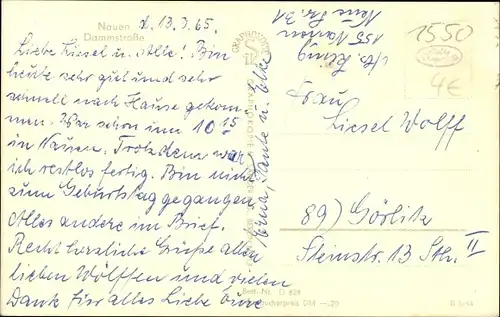 Nauen
Dammstraße
d. 13.3.65.
Liebe Liesel u. Alle! Bin
heute sehr gut und sehr
schnell nach Hause gekom-
men. War schon um 10 15
in Nauen. Trotzdem war
ich restlos fertig. Bin nicht
zum Geburtstag gegangen
Alles andere im Brief.
Recht herzliche Grüße allen
lieben Wölffen und vielen
Dank für alles Liebe Eure
Erna, Tante u. Elke
155 Nauen
Neue Str. 31
Frau
Liesel Wolff
89) Görlitz
Steinstr. 13 Sth. II
1550
4€
Best.-Nr. D 828
Verbraucherpreis DM -.20